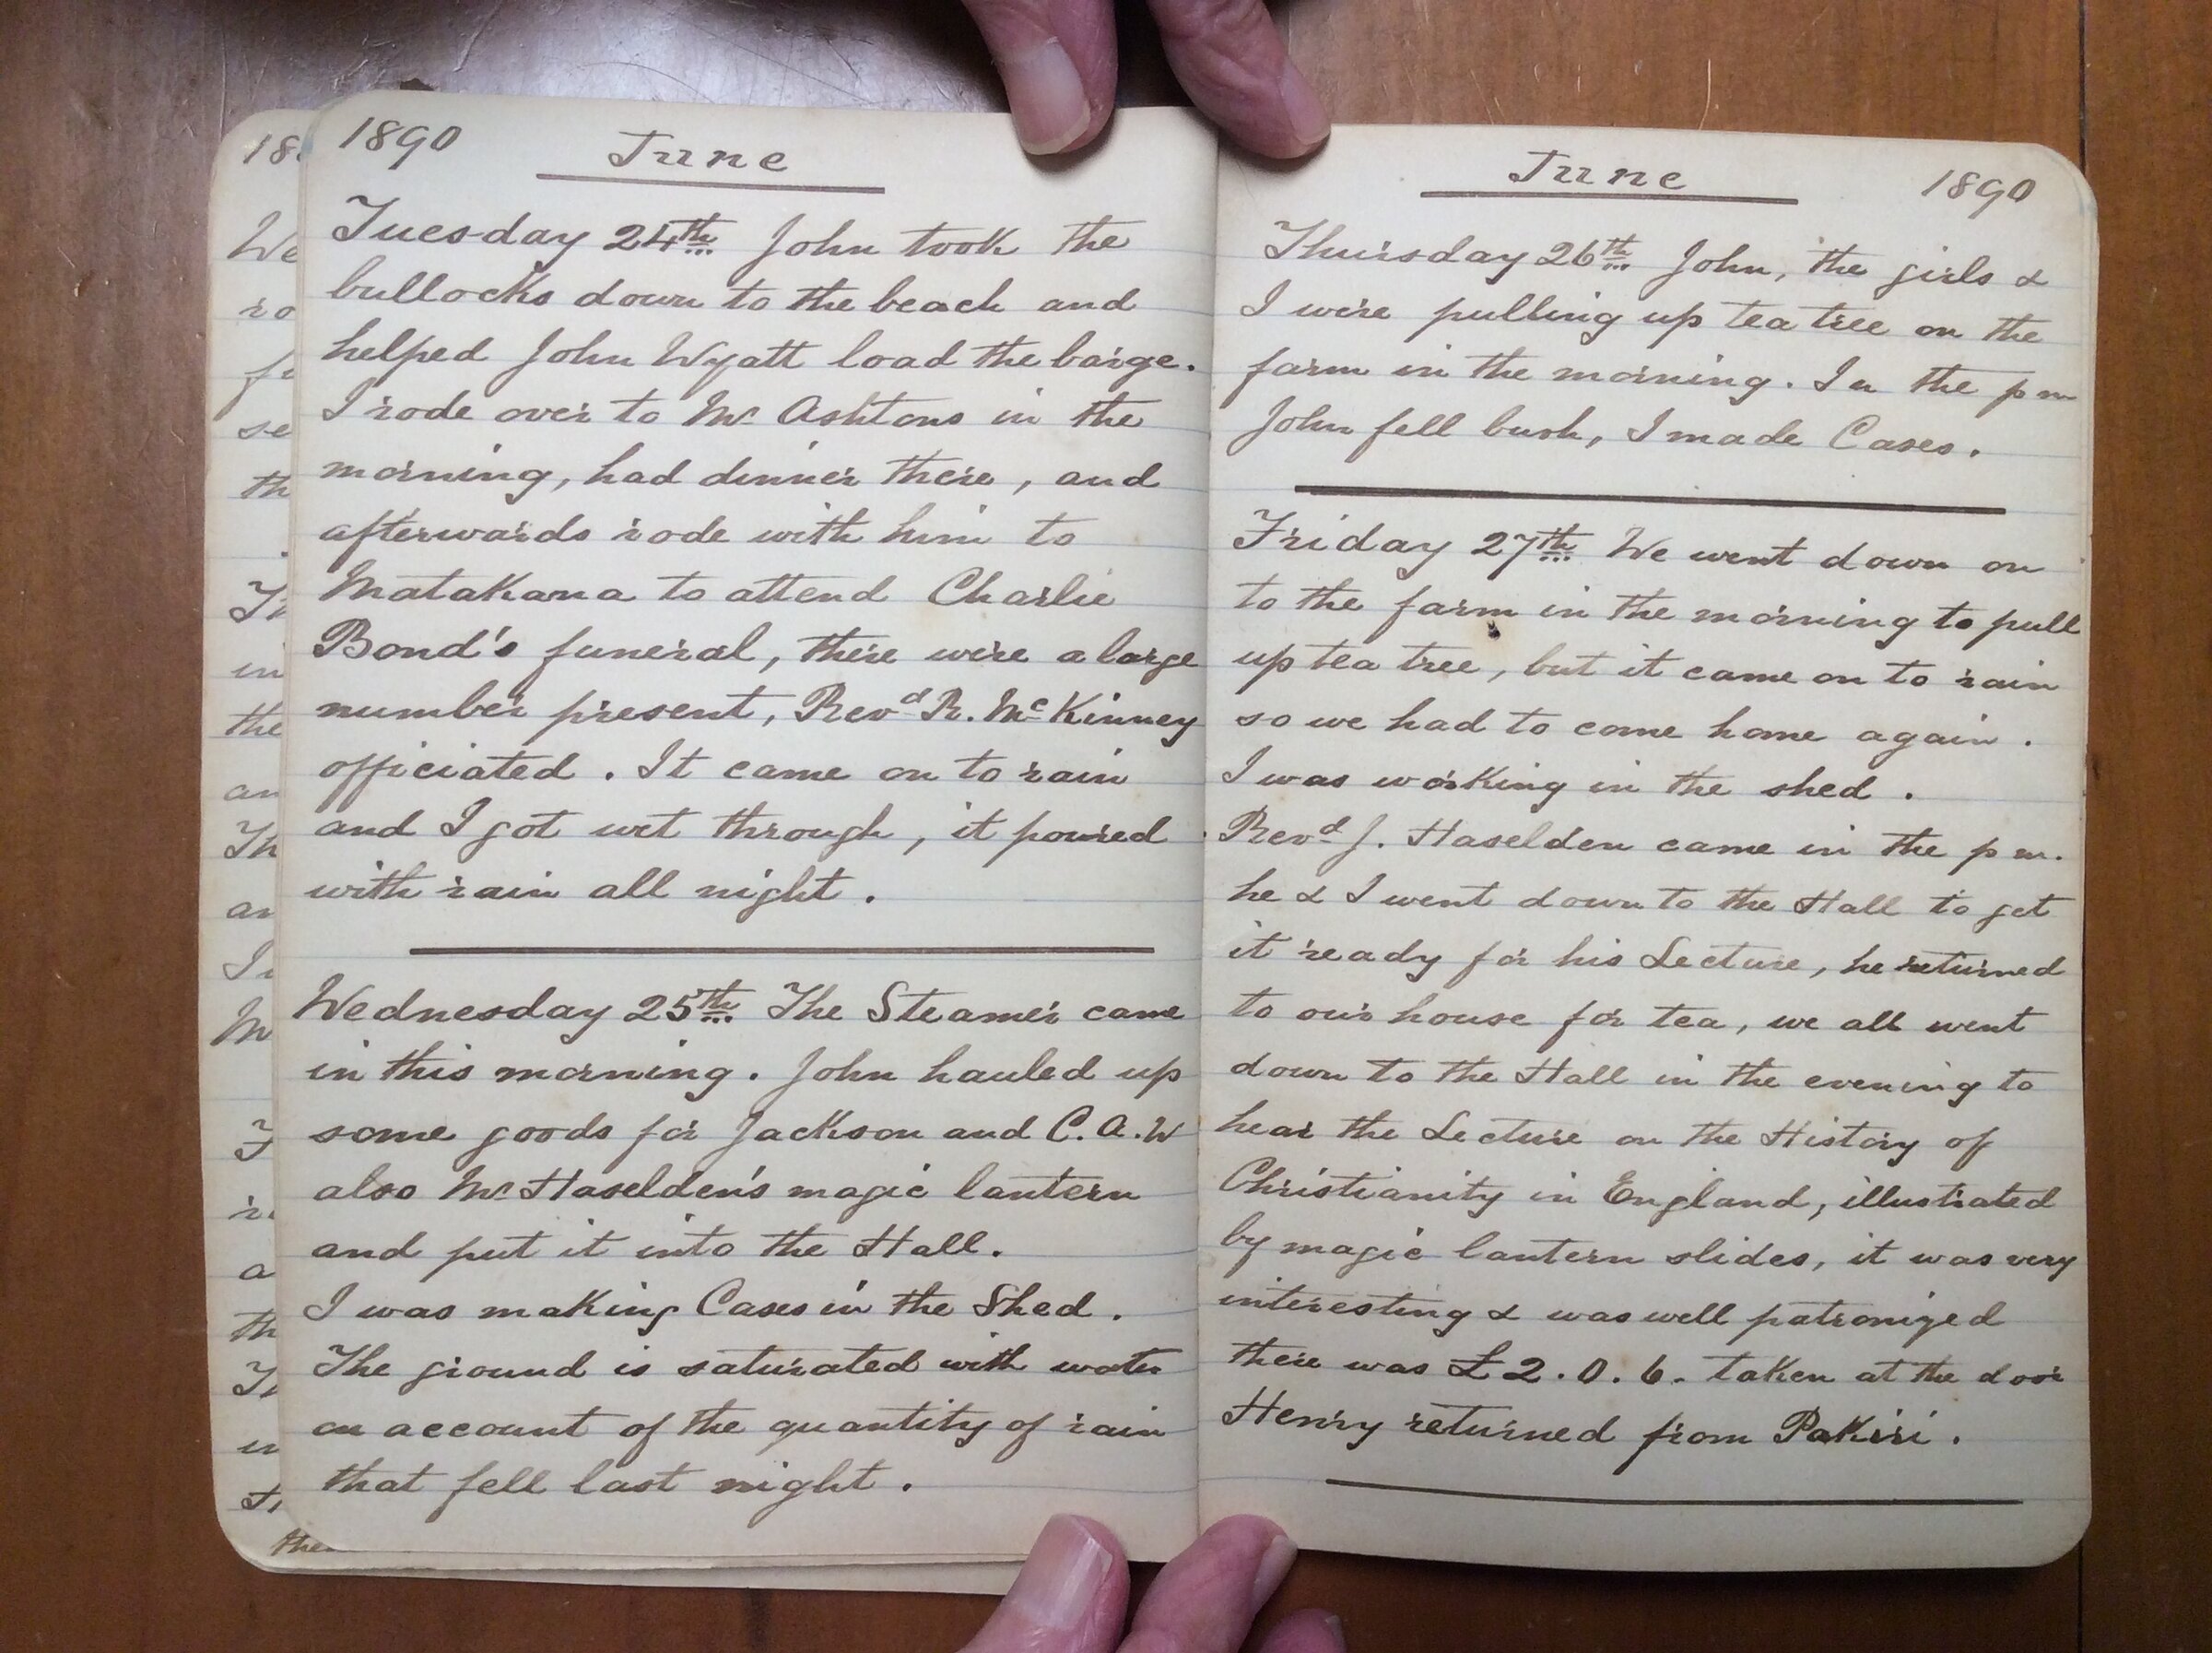 1890 June
Tuesday 24th John took the
bullocks down to the beach and
helped John Wyatt load the barge.
I rode over to Mr Ashtons in the
morning, had dinner there, and
afterwards rode with him to
Matakana to attend Charlie
Bond's funeral, there were a large
number present, Revd R. McKinney
officiated. It came on to rain
and I got wet through, it poured
with rain all night.
Wednesday 25th The Steamer came
in this morning. John hauled up
some goods for Jackson and C.A.W
also Mr Haselden's magic lantern
and put it into the Hall.
I was making Cases in the Shed.
The ground is saturated with water
on account of the quantity of rain
that fell last night.
June 1890
Thursday 26th John, the girls &
I were pulling up tea tree on the
farm in the morning. In the pm
John fell bush, I made Cases.
Friday 27th We went down on
to the farm in the morning to pull
up tea tree, but it came on to rain
so we had to come home again.
I was working in the shed.
Revd J. Haselden came in the pm.
he & I went down to the Hall to get
it ready for his Lecture, he returned
to our house for tea, we all went
down to the Hall in the evening to
hear the Lecture on the History of
Christianity in England, illustrated
by magic lantern slides, it was very
interesting & was well patronized
there was £2.0.6. taken at the door
Henry returned from Pakiri.